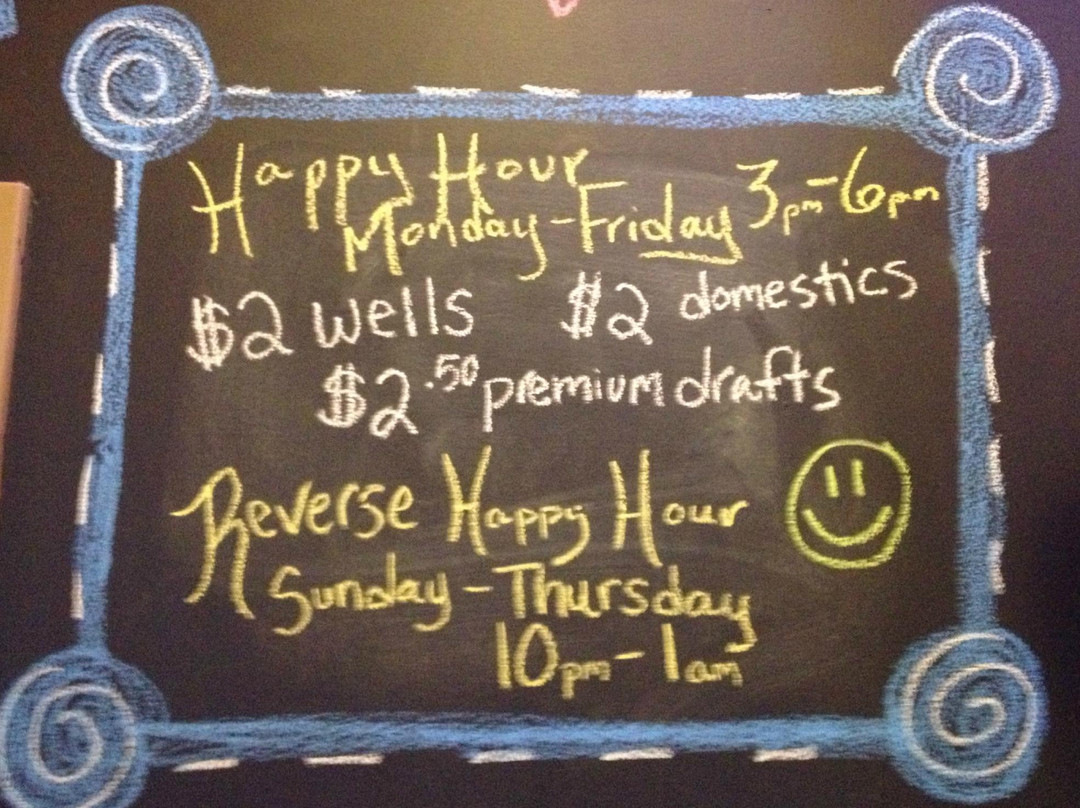 Happy Hour
Monday-Friday 3pm-6pm
$2 wells $2 domestics
$2.50 premium drafts
Reverse Happy Hour
Sunday-Thursday
10pm-1am